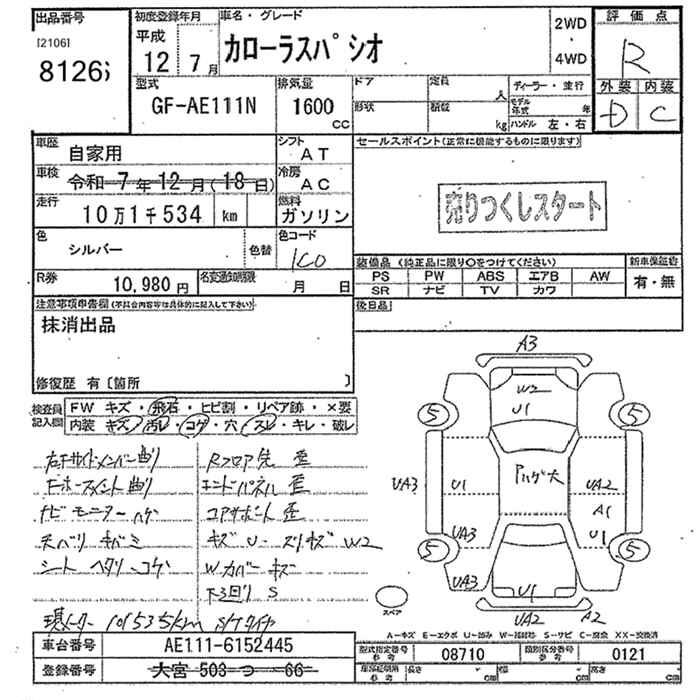 出品番号
[2106]
8126
初度登録年月
平成
12 7月
車名・グレード
カローラスパシオ
2WD
・
4WD
評価点
R
外装 内装
D C
型式
GF-AE111N
排気量
1600
CC
ドア
定員
人
形状
kg
ディーラー・並行
モデル年式 年
ハンドル 左・右
車歴
自家用
シフト
AT
車検
令和 7年 12月(18日)
冷房
AC
走行
10万1千534 km
燃料
ガソリン
色
シルバー
色替
色コード
1C0
R券
10,980円
名変通知期限
月 日
セールスポイント(正常に機能するものに限ります)
売りつくしスタート
装備品 (純正品に限り〇をつけてください)
PS PW ABS エアB AW
SR ナビ TV カワ
新車保証書
有・無
後日品
注意事項申告欄(不具合内容等は具体的に記入して下さい)
抹消出品
修復歴 有〔箇所 〕
検査員記入欄
FW キズ・飛石・ヒビ割・リペア跡・×要
内装 キズ・汚レ・コゲ・穴・スレ・キレ・破レ
右Fサイドメンバー曲り
Rフロア先 歪
エンドパネル 歪
ナビモニターハゲ
コアサポート 歪
キズ U
W2
シート ヘタリ・コゲ
Wカバー キズ
下回り S
現メーター 101535km S/Tタイヤ
A3
W2
U1
5
5
Pハゲ大
UA3
U1
UA2
A1
U1
UA3
5
5
UA3
U1
UA2
A2
スペア
A-キズ E-エクボ U-凹み W-補修跡 S-サビ C-腐食 XX-交換済
車台番号
AE111-6152445
登録番号
大宮 503 つ 66
型式指定番号
参考
08710
類別区分番号
参考
0121
長さ cm
幅 cm
高さ cm